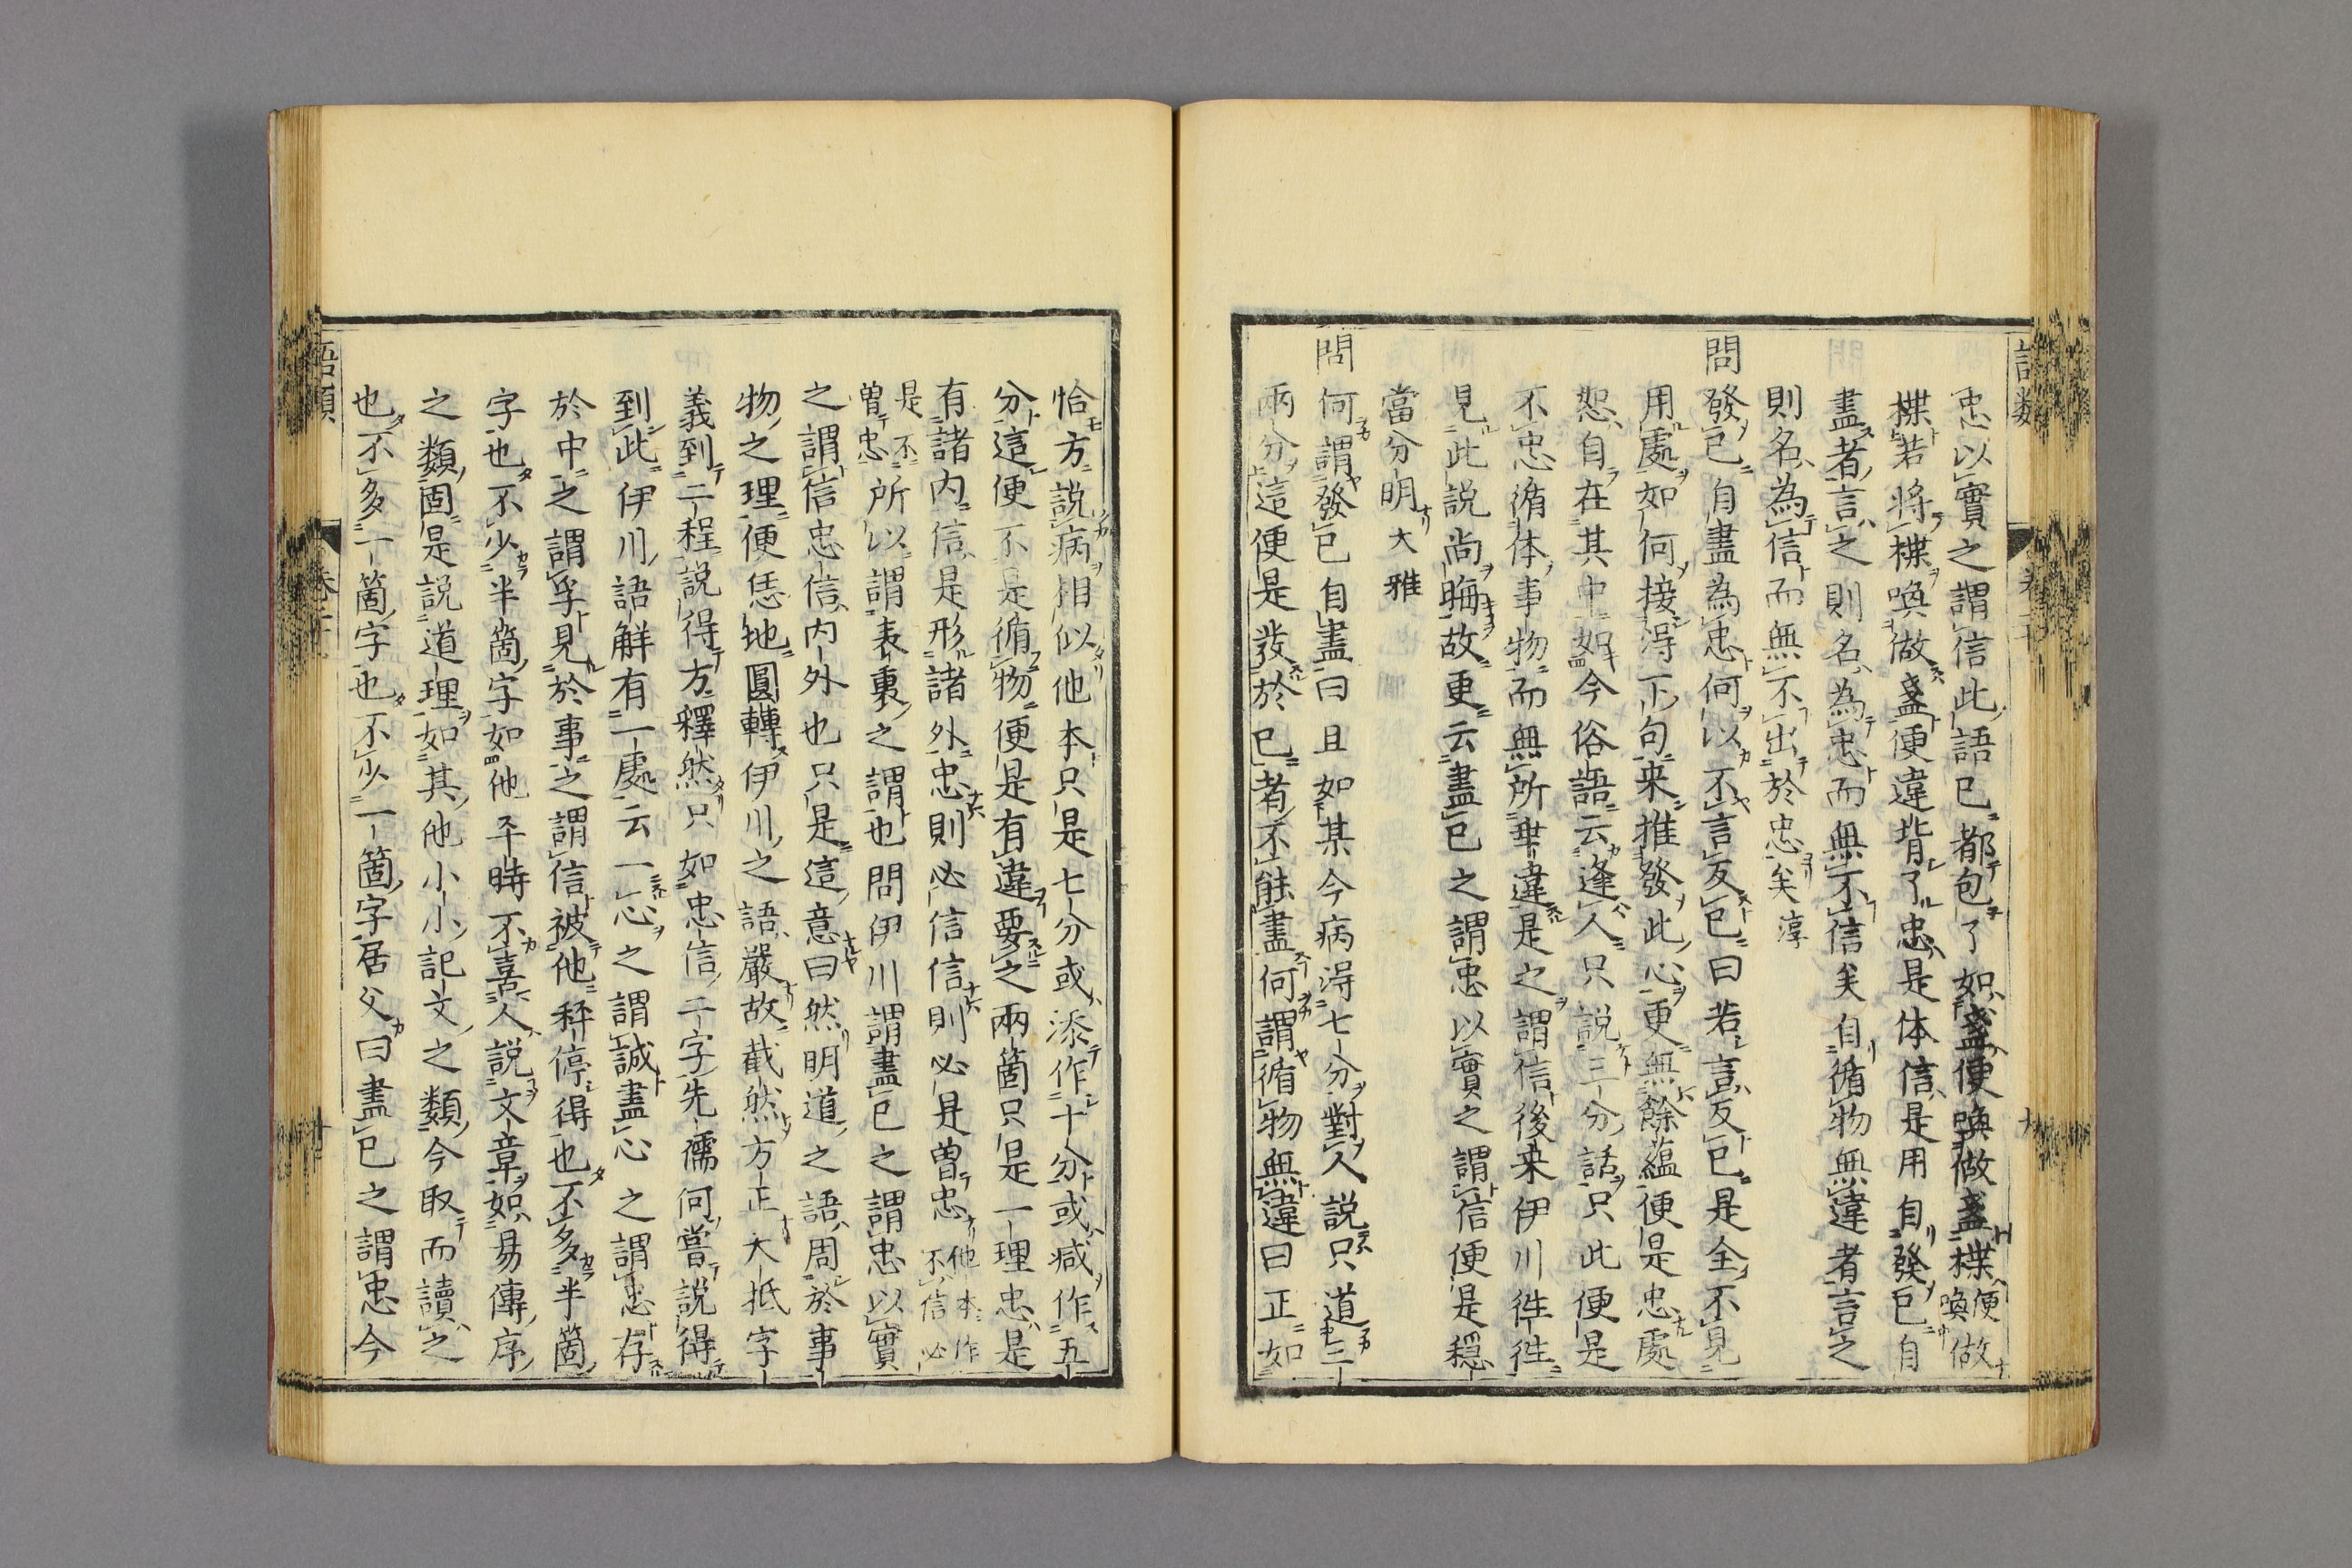 忠以實之謂信此語已都包了如盞便喚做盞楪便喚做
楪若將楪喚做盞便違背了忠是体信是用自發已自
盡者言之則名為忠而無不信矣自循物無違者言之
則名為信而無不出於忠矣淳
問發已自盡為忠何以不言反已曰若言反已是全不見
用處如何接得下句来推發此心更無餘蘊便是忠處
恕自在其中如今俗語云逢人只説三分話只此便是
不忠循体事物而無所乖違是之謂信後来伊川徃徃
見此説尚晦故更云盡已之謂忠以實之謂信便是穏
當分明大雅
問何謂發已自盡曰且如某今病得七分對人説只道三
兩分這便是發於已者不能盡何謂循物無違曰正如
恰方説病相似他本只是七分或添作十分或减作五
分這便不是循物便是有違要之兩箇只是一理忠是
有諸内信是形諸外忠則必信信則必是曽忠他本作不信必
是不曽忠所以謂表裏之謂也問伊川謂盡已之謂忠以實
之謂信忠信内外也只是這意曰然明道之語周於事
物之理便恁地圓轉伊川之語嚴故截然方正大抵字
義到二程説得方釋然只如忠信二字先儒何嘗説得
到此伊川語解有一處云一心之謂誠盡心之謂忠存
於中之謂孚見於事之謂信被他秤停得也不多半箇
字也不少半箇字如他平時不喜人説文章如易傳序
之類固是説道理如其他小小記文之類今取而讀之
也不多一箇字也不少一箇字居父曰盡已之謂忠今
語類